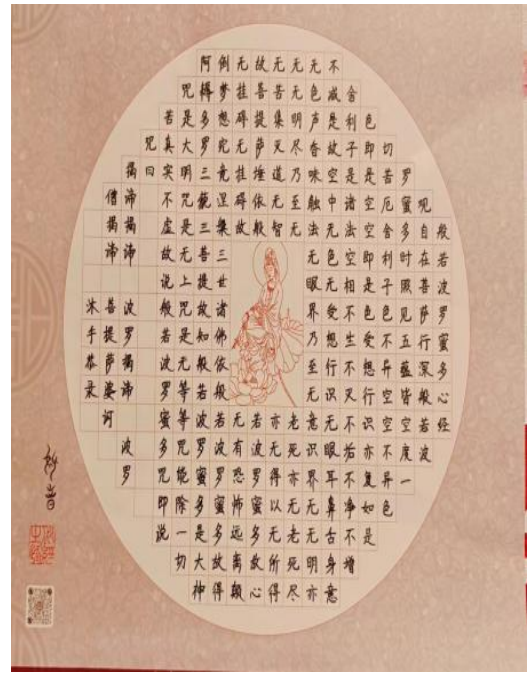 般若波罗蜜多心经
观自在菩萨行深般若波
罗蜜多时照见五蕴皆空度一
切苦厄舍利子色不异空空不异色
色即是空空即是色受想行识亦复如是
舍利子是诸法空相不生不灭不垢不净不增
不减是故空中无色无受想行识无眼耳鼻舌身意
无色声香味触法无眼界乃至无意识界无无明亦
无无明尽乃至无老死亦无老死尽
无苦集灭道无智亦无得以无所得
故菩提萨埵依般若波罗蜜多故心
无挂碍无挂碍故无有恐怖远离颠
倒梦想究竟涅槃三世诸佛依般若波罗蜜多故得
阿耨多罗三藐三菩提故知般若波罗蜜多是大神
咒是大明咒是无上咒是无等等咒能除一切
苦真实不虚故说般若波罗蜜多咒即说
咒曰
揭谛揭谛波罗揭谛波罗
僧揭谛菩提萨婆诃
沐手恭录
妙音